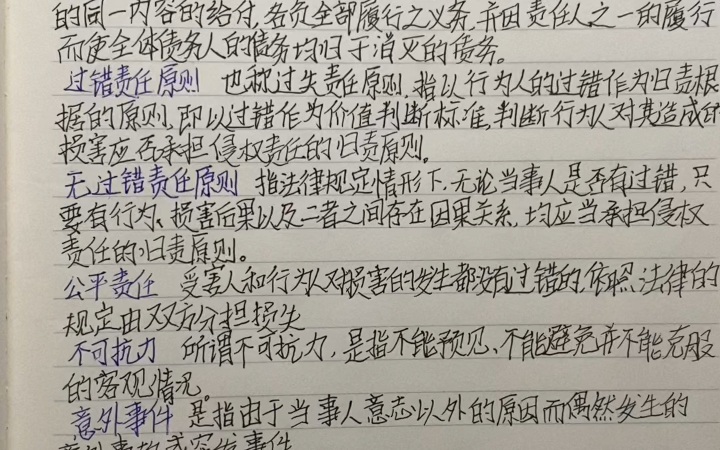 的同一内容的给付,各负全部履行之义务,并因责任人之一的履行
而使全体债务人的债务均归于消灭的债务。
过错责任原则 也称过失责任原则,指以行为人的过错作为归责根
据的原则,即以过错作为价值判断标准,判断行为人对其造成的
损害应否承担侵权责任的归责原则。
无过错责任原则 指法律规定情形下,无论当事人是否有过错,只
要有行为、损害后果以及二者之间存在因果关系,均应当承担侵权
责任的归责原则。
公平责任 受害人和行为人对损害的发生都没有过错的,依照法律的
规定由双方分担损失
不可抗力 所谓不可抗力,是指不能预见、不能避免并不能克服
的客观情况。
意外事件 是指由于当事人意志以外的原因而偶然发生的
意外事故或突发事件